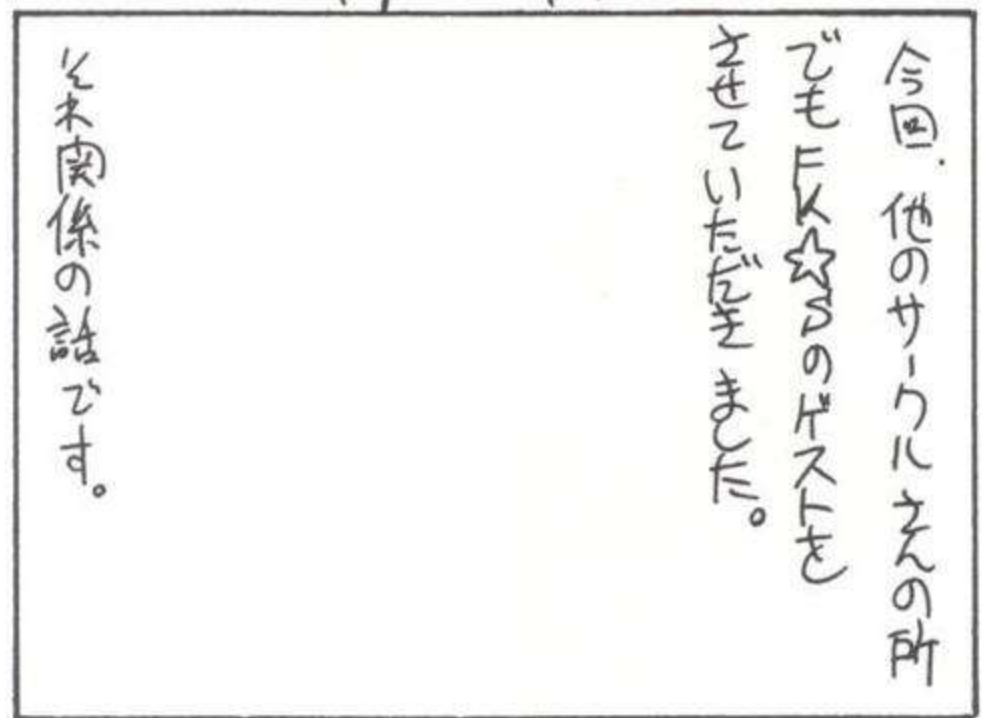 今回、他のサークルさんの所
でもFK☆Sのゲストを
させていただきました。
それ関係の話です。